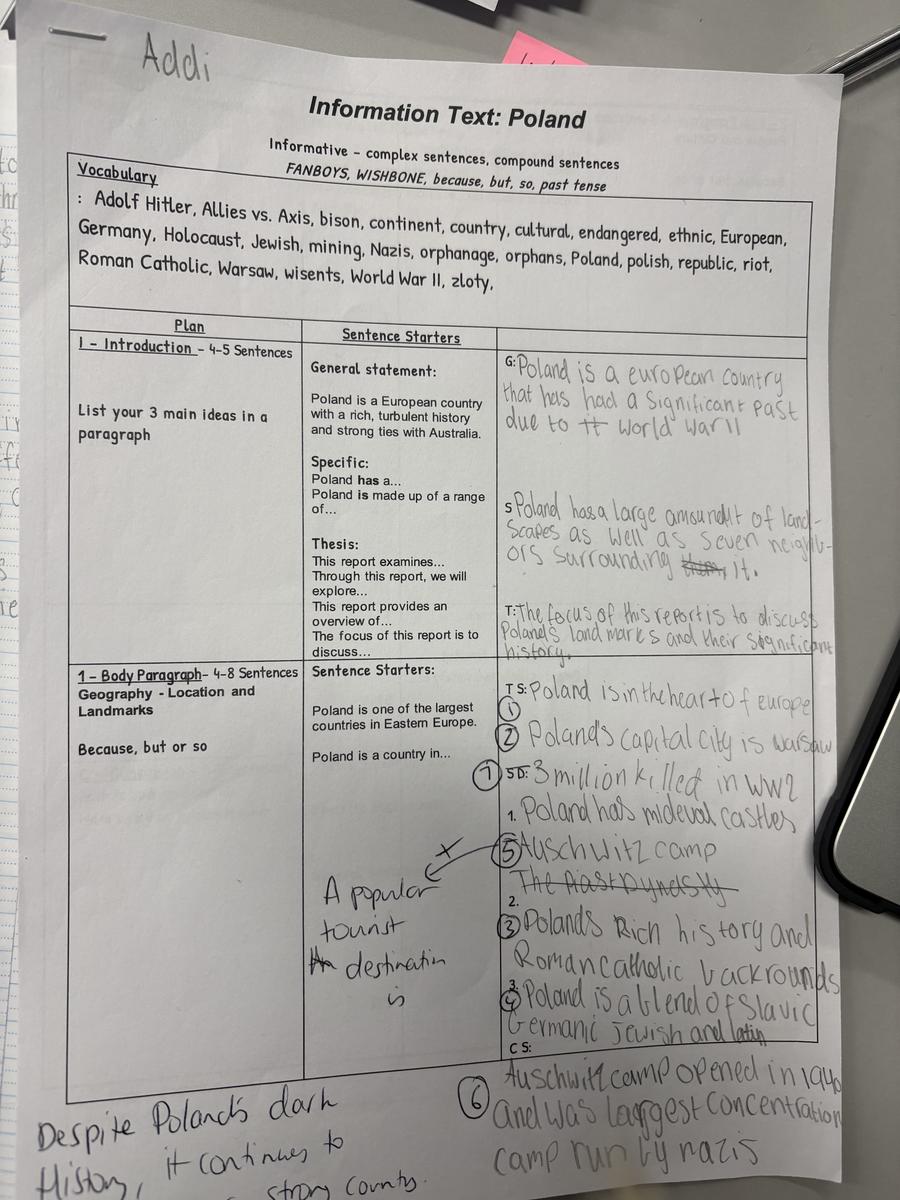 Addi
Information Text: Poland
Informative – complex sentences, compound sentences
FANBOYS, WISHBONE, because, but, so, past tense
Vocabulary
: Adolf Hitler, Allies vs. Axis, bison, continent, country, cultural, endangered, ethnic, European,
Germany, Holocaust, Jewish, mining, Nazis, orphanage, orphans, Poland, polish, republic, riot,
Roman Catholic, Warsaw, wisents, World War II, zloty,
Plan
Sentence Starters
I – Introduction – 4-5 Sentences
List your 3 main ideas in a
paragraph
General statement:
Poland is a European country
with a rich, turbulent history
and strong ties with Australia.
Specific:
Poland has a...
Poland is made up of a range
of...
Thesis:
This report examines...
Through this report, we will
explore...
This report provides an
overview of...
The focus of this report is to
discuss...
G: Poland is a european country
that has had a significant past
due to tt World War II
S Poland has a large amoundt of land-
scapes as well as seven neighb-
ors surrounding them, it.
T: The focus of this report is to discuss
Poland's land marks and their significant
history.
1 – Body Paragraph– 4-8 Sentences
Geography - Location and
Landmarks
Because, but or so
Sentence Starters:
Poland is one of the largest
countries in Eastern Europe.
Poland is a country in...
A popular
tourist
destination
is
TS: Poland is in the heart of europe
1
2 Poland's capital city is warsaw
7 SD: 3 million killed in WW2
1. Poland has mideval castles
5 Auschwitz camp
The Piast Dynasty
2.
3 Polands Rich history and
Roman catholic backrounds
3.
4 Poland is a blend of Slavic
Germanic Jewish and latin
C S:
6 Auschwitz camp opened in 1940
and was largest concentration
camp run by nazis
Despite Poland's dark
History, it continues to
strong county.